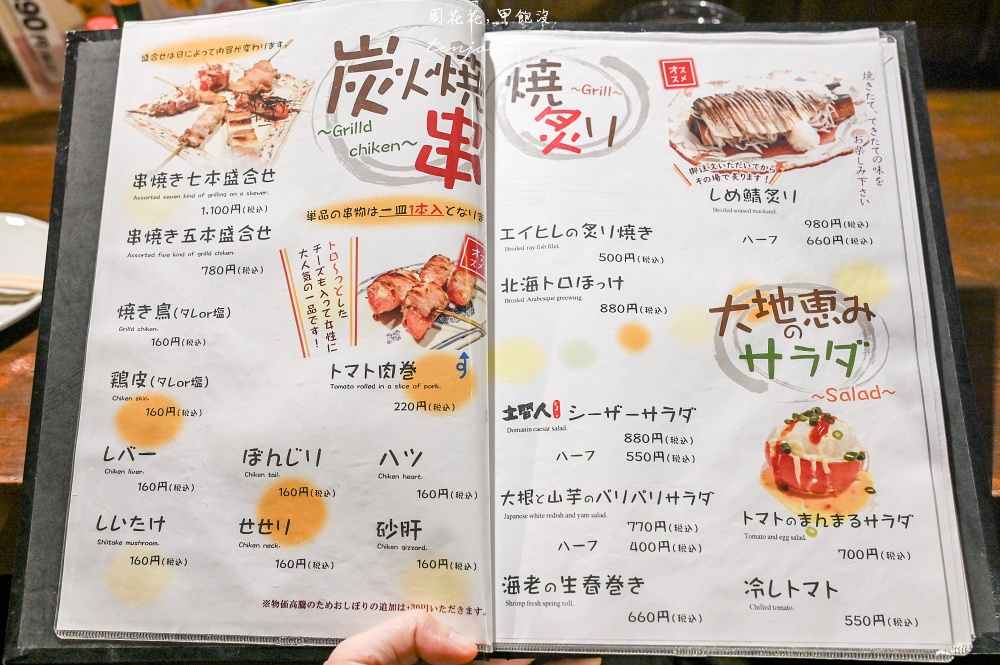 周花花,甲飽沒
tenjo
盛合せは日によって内容が変わります。
炭火焼
串
~Grilld
chiken~
串焼き七本盛合せ
Assorted seven kind of grilling on a skewer.
1,100円(税込)
単品の串物は一皿1本入となりま
串焼き五本盛合せ
Assorted five kind of grilld chiken.
780円(税込)
トロ〜っとした
チーズも入って女性に
大人気の一品です!
オス
焼き鳥(タレor塩)
Grilld chiken.
160円(税込)
トマト肉巻
Tomato rolled in a slice of pork.
220円(税込)
鶏皮(タレor塩)
Chiken skin.
160円(税込)
レバー
Chiken liver.
160円(税込)
ぼんじり
Chiken tail.
160円(税込)
ハツ
Chiken heart.
160円(税込)
しいたけ
Shiitake mushroom.
160円(税込)
せせり
Chiken neck.
160円(税込)
砂肝
Chiken gizzard.
160円(税込)
※物価高騰のためおしぼりの追加は+30円いただきます。
焼
炙り
~Grill~
オススメ
焼きたて、できたての味を
お楽しみ下さい
御注文いただいてから
その場で炙ります!
しめ鯖炙り
Broiled soused mackerel.
980円(税込)
ハーフ 660円(税込)
エイヒレの炙り焼き
Broiled ray fish filet.
500円(税込)
北海トロほっけ
Broiled Arabesque greewing.
880円(税込)
大地恵み
の
サラダ
~Salad~
土間人 シーザーサラダ
Domanin caesar salad.
880円(税込)
ハーフ 550円(税込)
大根と山芋のバリバリサラダ
Japanese white redish and yam salad.
770円(税込)
ハーフ 400円(税込)
トマトのまんまるサラダ
Tomato and egg salad.
700円(税込)
海老の生春巻き
Shrimp fresh spring roll.
660円(税込)
冷しトマト
Chilled tomato.
550円(税込)